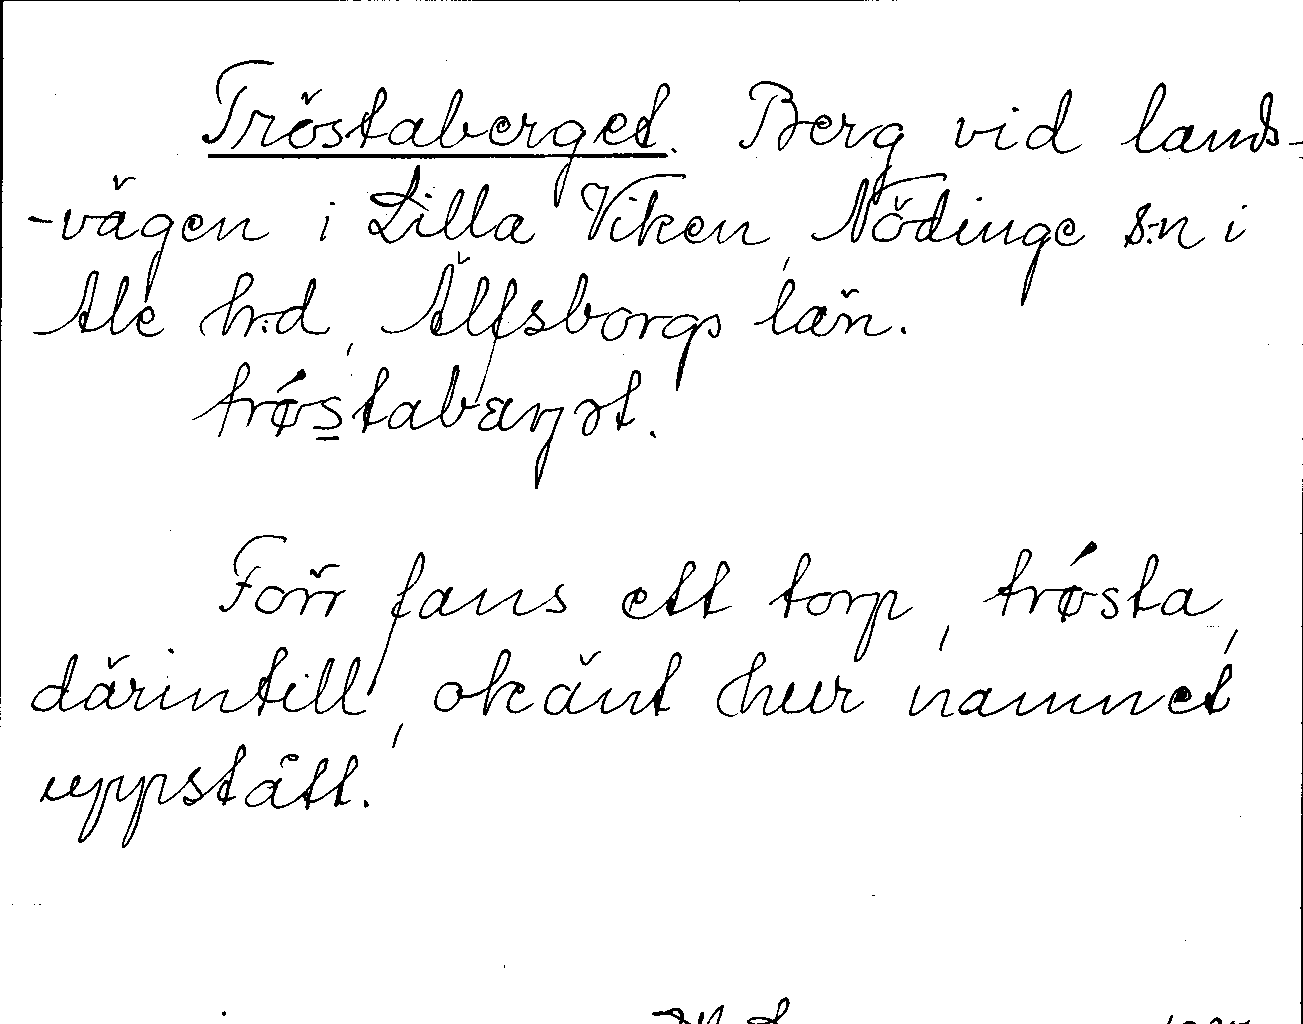 Tröstaberget. Berg vid lands-
-vägen i Lilla Viken, Nödinge s:n i
Ale h:d, Älfsborgs län.
trǿs̲tabærjət.
Förr fans ett torp, trǿsta,
därintill, okänt hur namnet
uppstått.